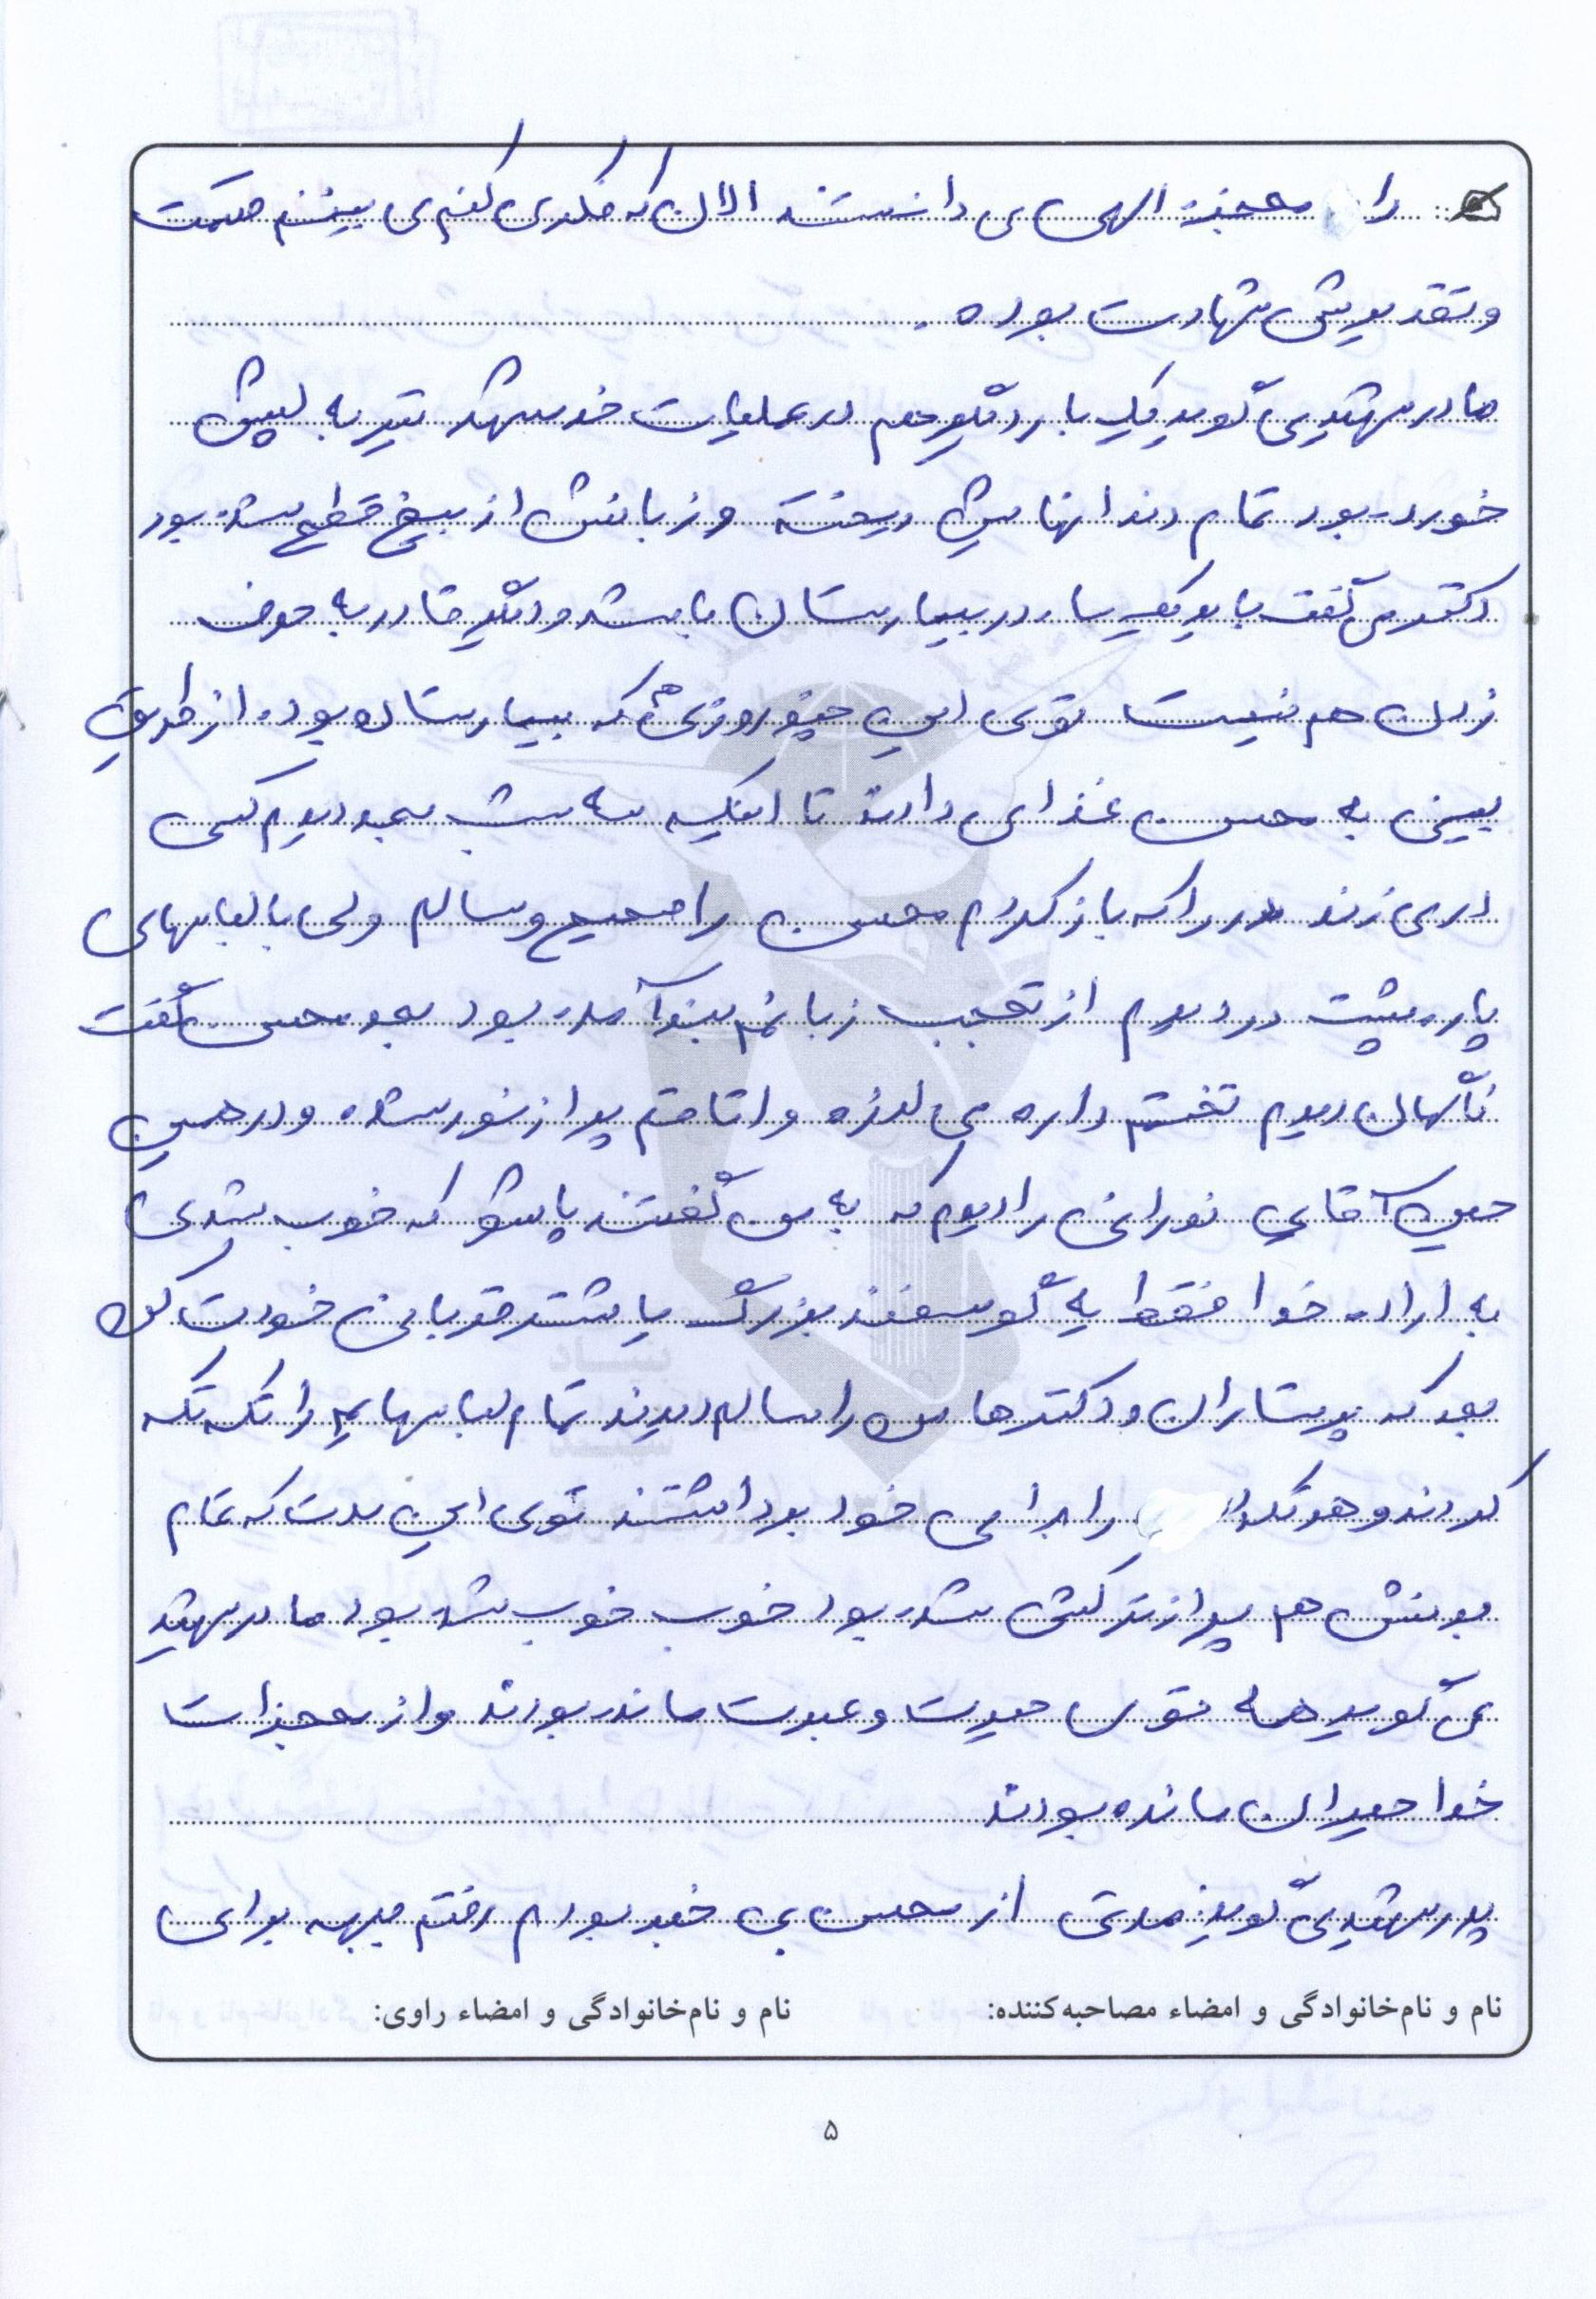 را معجزه الهی می دانستند الان که فکر می کنم می بینم حکمت
و تقدیرش شهادت بوده .
مادر شهید می گوید یک بار دیگر هم در عملیات خرمشهر تیر به لپش
خورده بود تمام دندانهایش ریخته و زبانش از بیخ قطع شده بود
دکتر می گفت باید یک سال در بیمارستان باشد و دیگر قادر به حرف
زدن هم نیست توی این چند روزی هم که بیمارستان بود. از طریق
بینی به محسن غذا می دادند تا اینکه یه شب دیدم کسی
در می زند در را که باز کردم محسن را صحیح و سالم ولی با لباسهای
پاره پشت در دیدم از تعجب زبانم بند آمده بود بعد محسن گفت
ناگهان دیدم تختم داره می لرزه و اتاقم پر از نور شده و در همین
حین آقای نورانی را دیدم که به من گفتند پاشو که خوب شدی
به اراده خدا فقط یه گوسفند بزرگ یا شتر قربانی خودت کن
بعد که پرستاران و دکترها من را سالم دیدند تمام لباسهایم را تکه تکه
کردند و هر تکه را برای خود برداشتند توی این مدت که تمام
بدنش هم پر از ترکش شده بود خوب خوب شده بود مادر شهید
می گوید همه توی حیرت و عبرت مانده بودند و از معجزات
خدا حیران مانده بودند
پدر شهید می گوید: مدتی از محسن بی خبر بودم رفتم جبهه برای
نام و نام‌خانوادگی و امضاء مصاحبه‌کننده: نام و نام‌خانوادگی و امضاء راوی:
۵